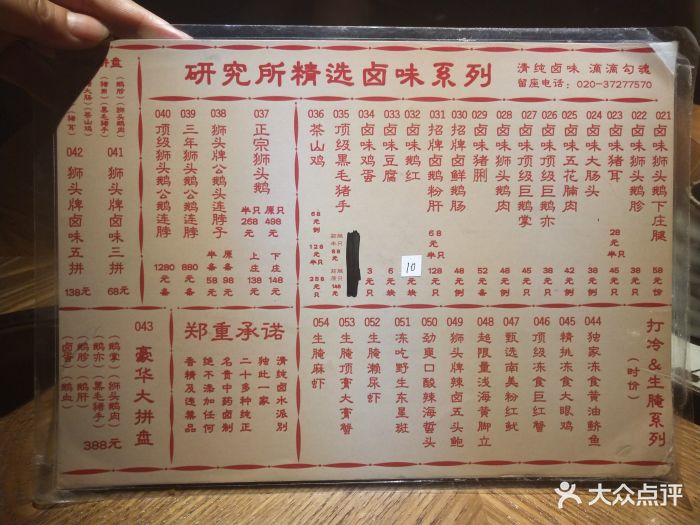 研究所精选卤味系列
清纯卤味 滴滴勾魂
留座电话：020-37277570
021 卤味狮头鹅下庄腿 58元 例
022 卤味狮头鹅胗 38元 例
023 卤味猪耳 28元 半只
024 卤味大肠头 38元 例
025 卤味五花腩肉 42元 例
026 卤味顶级巨鹅亦 45元 只
027 卤味顶级巨鹅掌 38元 只
028 卤味狮头鹅肉 48元 例
029 卤味猪脷 52元 条
030 招牌卤鲜鹅肠 48元 例
031 招牌卤鹅粉肝 68元半只 128元 只
032 卤味鹅红 10 元块
033 卤味豆腐 6元 块
034 卤味鸡蛋 3元 只
035 顶级黑毛猪手
036 茶山鸡 68元例 128元半只 258元 只
037 正宗狮头鹅
半只 268元 原只 498元
上庄 138元 下庄 148元
038 狮头牌公鹅头连脖子
半条 58元 原条 98元
039 三年狮头鹅公鹅头连脖 880元 条
040 顶级狮头鹅公鹅头连脖 1280元 条
041 狮头牌卤味三拼 68元
（鹅胗）（狮头鹅肉）
（猪脷）（黑毛猪手）
042 狮头牌卤味五拼 138元
（茶山鸡）
（猪耳）
打冷&生腌系列
（时价）
044 独家冻食黄油鲚鱼
045 精挑冻食大眼鸡
046 顶级冻食巨红蟹
047 甄选南美粉红鱿
048 超限量浅海黄脚立
049 狮头牌辣卤五头鲍
050 劲爽口酸辣海蜇头
051 冻吃野生东星斑
052 生腌濑尿虾
053 生腌顶膏大膏蟹
054 生腌麻虾
郑重承诺
清纯卤水派别
独此一家
二十多种纯正
名贵中药卤制
绝不添加任何
香精及违禁品
043 豪华大拼盘 388元
（鹅掌）（狮头鹅肉）
（鹅亦）（黑毛猪手）
（鹅胗）（鹅肝）
（卤蛋）（鹅血）
大众点评